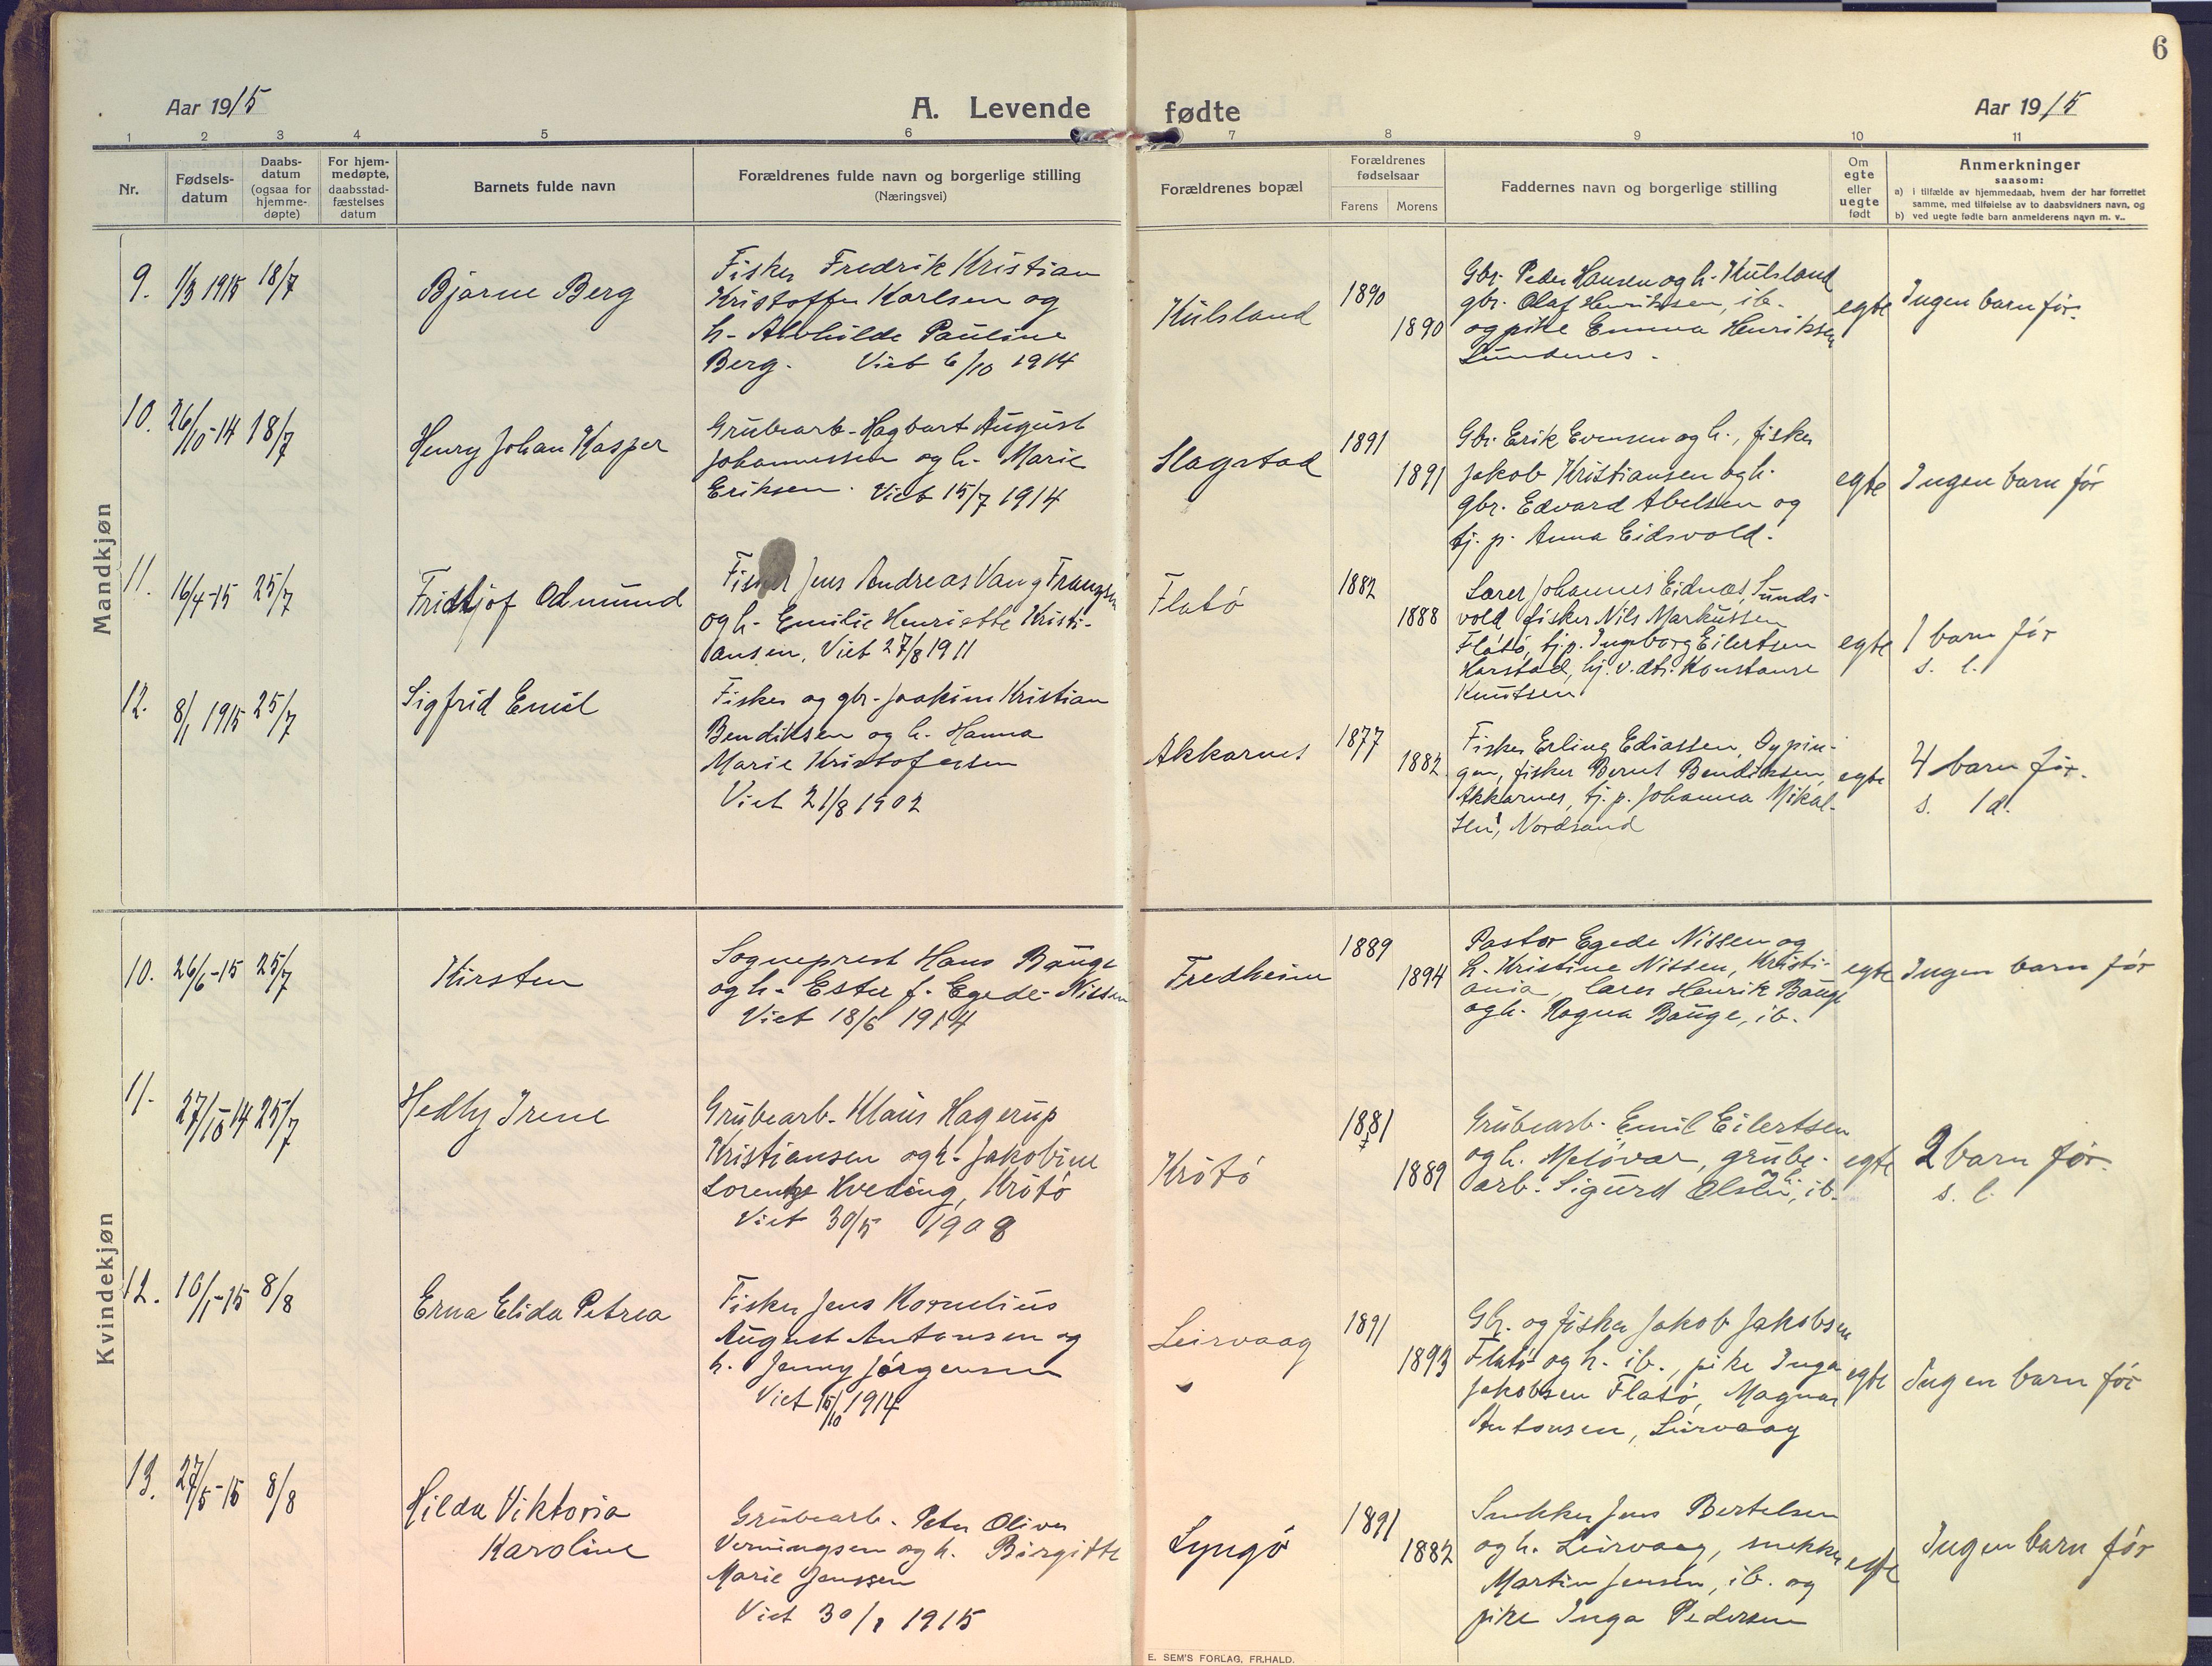 6
Aar 1915
A. Levende fødte
Aar 1915
1 2 3 4 5 6 7 8 9 10 11
Nr.
Fødsels-
datum
Daabs-
datum
(ogsaa for
hjemme-
døpte)
For hjem-
medøpte,
daabsstad-
fæstelses
datum
Barnets fulde navn
Forældrenes fulde navn og borgerlige stilling
(Næringsvei)
Forældrenes bopæl
Forældrenes
fødselsaar
Farens Morens
Faddernes navn og borgerlige stilling
Om
egte
eller
uegte
født
Anmerkninger
saasom:
a) i tilfælde av hjemmedaab, hvem der har forrettet
samme, med tilføielse av to daabsvidners navn, og
b) ved uegte fødte barn anmelderens navn m. v..
Mandkjøn
9. 1/3 1915 18/7
Bjarne Berg
Fisker Fredrik Kristian
Kristoffer Karlsen og
h. Alvhilde Pauline
Berg. Viet 6/10 1914
Kulsland
1890
1890
Gbr. Peder Hansen og h. Kulsland
gbr. Olaf Henriksen, ib.
og pike Emma Henriksen
Lundenes.
egte
Ingen barn før.
10. 26/10-14 18/7
Henry Johan Kasper
Grubearb. Hagbart August
Johannessen og h. Marie
Eriksen. Viet 15/7 1914
Slagstad
1891
1891
Gbr. Erik Evensen og h., fisker
Jakob Kristiansen og h.
gbr. Edvard Abelsen og
tj. p. Anna Eidsvold.
egte
Ingen barn før
11. 16/4-15 25/7
Fridtjof Odmund
Fisker Jens Andreas Vang Frantzen
og h. Emilie Henriette Kristi-
ansen, Viet 27/8 1911
Flatø
1882
1888
Lærer Johannes Eidnes, Sunds-
vold fisker Nils Markussen
Flatø, tj.p. Ingeborg Eilertsen
Harstad, hj. v. dtr. Konstanse
Knutsen
egte
1 barn før
s. l.
12. 8/1 1915 25/7
Sigfrid Emil
Fisker og gbr. Joakim Kristian
Bendiksen og h. Hanna
Marie Kristofersen
Viet 21/8 1902
Akkarnes
1877
1882
Fisker Erling Ediassen,
fisker Bernt Bendiksen,
Akkarnes, tj. p. Johanna Mikal-
sen, Nordsand
egte
4 barn før.
s. 1 d.
Kvindekjøn
10. 26/6-15 25/7
Kirsten
Sogneprest Hans Bauge
og h. Ester f. Egede-Nissen
Viet 18/6 1914
Fredheim
1889
1894
Pastor Egede Nissen og
h. Kristine Nissen, Kristi-
ania, lærer Henrik Bauge
og h. Ragna Bauge, ib.
egte
Ingen barn før
11. 27/10-14 25/7
Hedly Irene
Grubearb. Klaus Hagerup
Kristiansen og h. Jakobine
Lorentze Hveding, Krøtø
Viet 30/5 1908
Krøtø
1881
1889
Grubearb. Emil Eilertsen
og h. Meløvær, grube-
arb. Sigurd Olsen, ib.
egte
2 barn før.
s. l.
12. 10/1-15 8/8
Erna Elida Petrea
Fisker Jens Kornelius
August Antonsen og
h. Jenny Jørgensen
Viet 15/10 1914
Leirvaag
1891
1893
Gbr. og fisker Jakob Jakobsen
Flatø og h. ib., pike Inga
Jakobsen Flatø, Magnus
Antonsen, Leirvaag
egte
Ingen barn før
13. 27/5-15 8/8
Hilda Viktoria
Karoline
Grubearb. Peter Oliver
Verningsen og h. Birgitte
Marie Janssen
Viet 30/1 1915
Lyngø
1891
1882
Snekker Jens Bertelsen
og h. Leirvaag, snekker
Martin Jensen, ib. og
pike Inga Pedersen
egte
Ingen barn før
E. SEM'S FORLAG, FR.HALD.